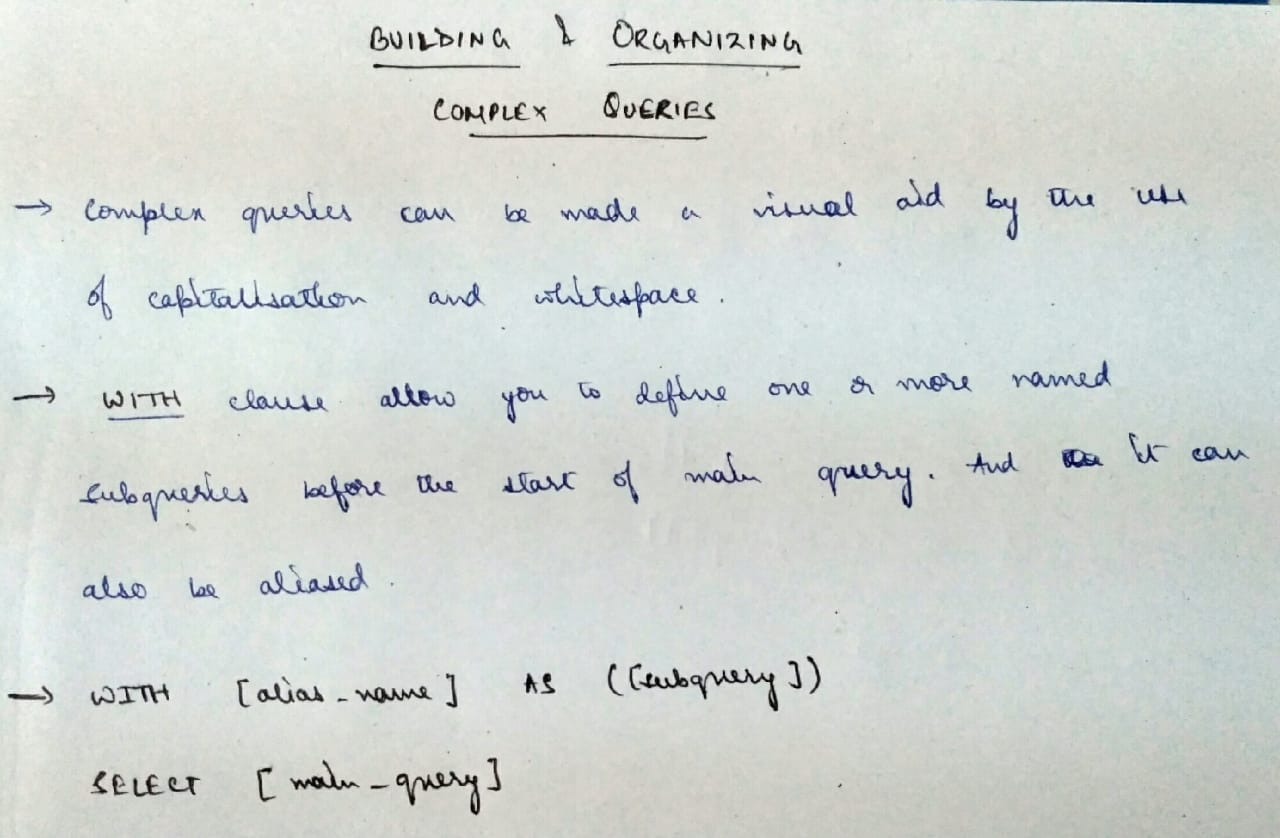 BUILDING & ORGANIZING
COMPLEX QUERIES
→ Complex queries can be made a visual aid by the use
of capitalisation and whitespace.
→ WITH clause allow you to define one or more named
subqueries before the start of main query. And it can
also be aliased.
→ WITH [alias_name] AS ([subquery])
SELECT [main_query]